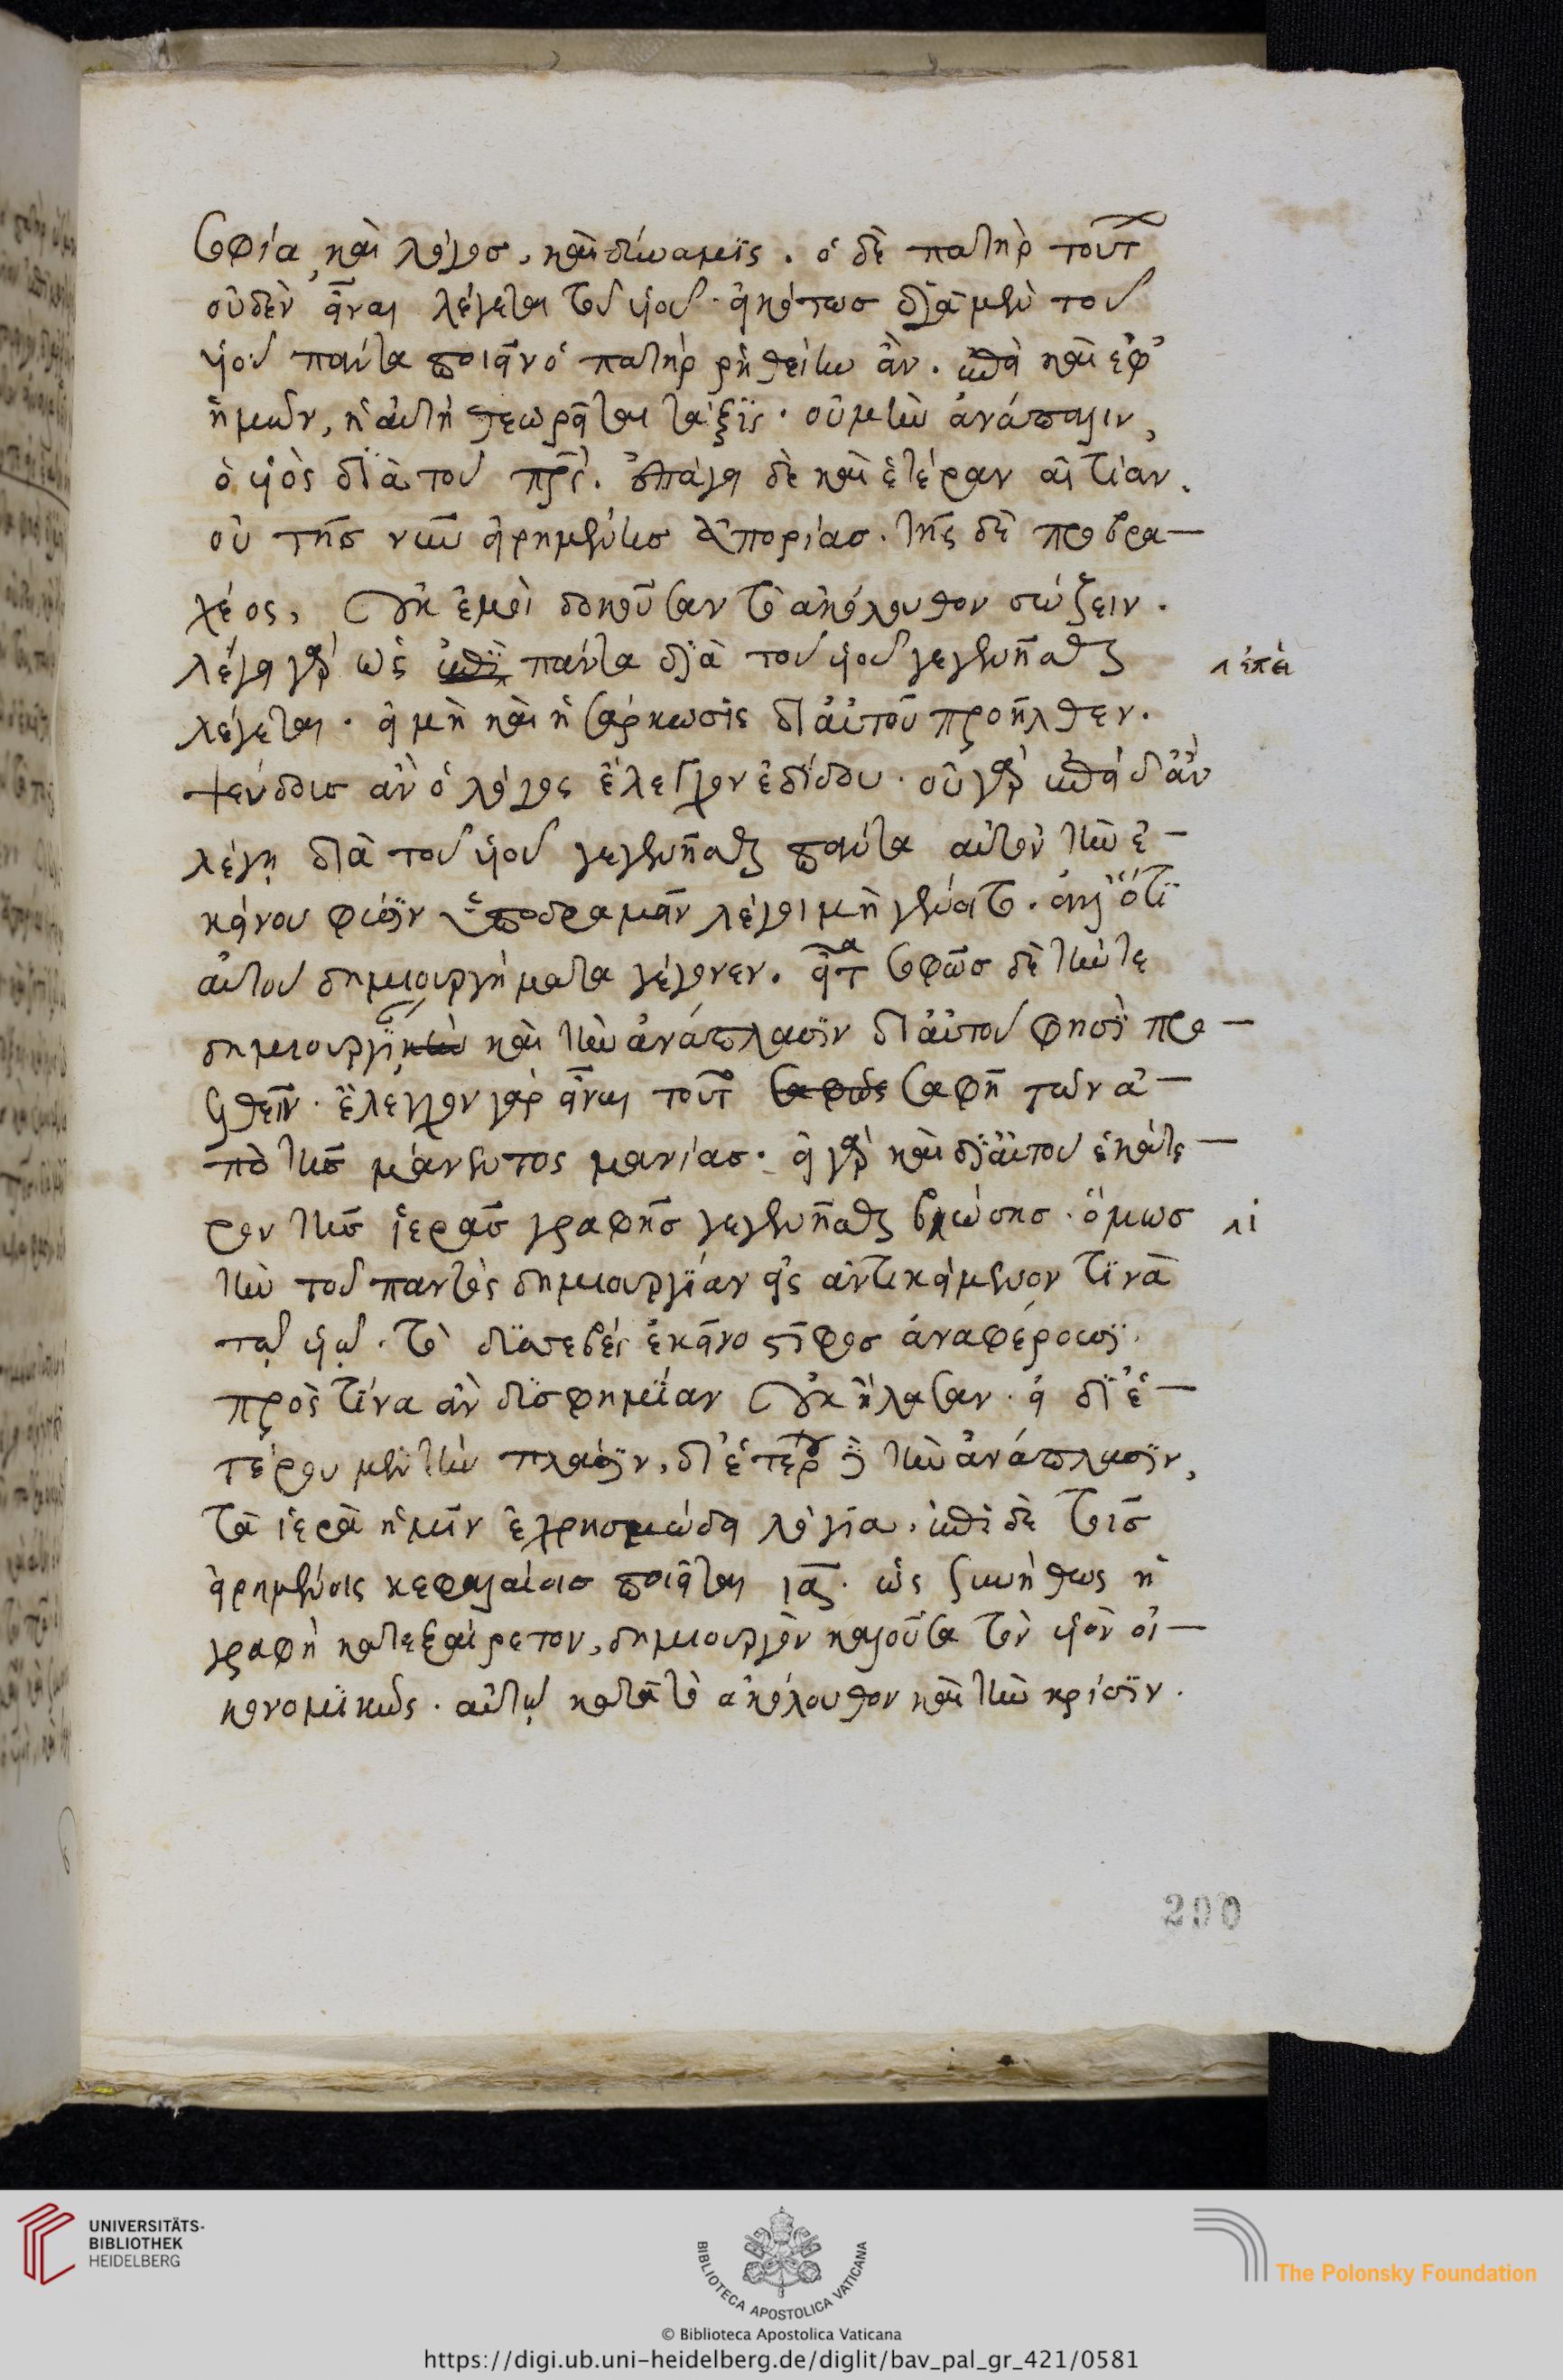 σοφία, καὶ λόγοσ, καὶ δύναμϊς. ὁ δὲ πατὴρ τοῦτ
οὐδὲν εἶναι λέγεται τοῦ υἱοῦ. εἰκότωσ δϊὰ μὲν τοῦ
υἱοῦ πάντα ποιεῖν ὁ πατὴρ ῥηθείη ἄν. ἐπεὶ καὶ ἐφ᾽
ἡμῶν, ἡ αὐτὴ θεωρεῖται τάξϊς. οὐ μὴν ἀνάπαλιν,
ὁ υἱὸς δϊὰ τοῦ πρς. ἐπάγει δὲ καὶ ἑτέραν αἰτίαν.
οὐ τῆσ νῦν εἰρημένησ ἀπορίασ. τῆς δὲ προβρα-
χέος, οὐκ ἐμοὶ δοκοῦσαν τὸ ἀκόλουθον σώζειν.
λέγει γὰρ ὡς ἐπεὶ πάντα δϊὰ τοῦ υἱοῦ γεγενῆσθαι
λέγεται. εἰ μὴ καὶ ἡ σάρκωσϊς δι᾽ αὐτοῦ προῆλθεν.
ψεύδουσ ἂν ὁ λόγος ἔλεγχον ἐδίδου. οὐ γὰρ
λέγῃ διὰ τοῦ υἱοῦ γεγενῆσθαι πάντα αὐτὸν τὴν ἐ-
κείνου φύσϊν λέγοι μὴ γένοιτο. ἀλλ᾽ ὅτϊ
αὐτοῦ δημιουργήματα γέγονεν. σοφῶσ δὲ τήν τε
δημιουργίαν καὶ τὴν ἀνάπλασϊν δι᾽ αὐτοῦ φησὶ προ-
ελθεῖν. ἔλεγχον γὰρ εἶναι τοῦτο σαφῶς σαφῆ τῶν ἀ-
πὸ τῆσ μάνεντος μανίασ. εἰ γὰρ καὶ δϊ᾽ αὐτοῦ ἑκάτε-
ρον τῆσ ἱερᾶσ γραφῆσ γεγενῆσθαι βοώσησ. ὅμωσ
τὴν τοῦ παντὸς δημιουργΐαν εἰς ἀντικείμενον τϊνὰ
τῷ υἱῷ. τὸ δυσσεβὲς ἐκεῖνο στῖφοσ ἀναφέρουσϊ.
πρὸς τίνα ἂν δυσφημΐαν οὐκ ἤλασαν. εἰ δϊ᾽ ἑ-
τέρου μὲν τὴν πλάσϊν, δι᾽ ἑτέρου δὲ τὴν ἀνάπλασϊν,
τὰ ἱερὰ ἡμῖν ἐχρησμώδει λόγϊα. ἐπὶ δὲ τοῖσ
εἰρημένοις κεφαλαίοισ ποιεῖται ὡς συνήθως ἡ
γραφὴ κατεξαίρετον, δημιουργὸν καλοῦσα τὸν υἱὸν οἰ-
κονομϊκῶς. αὐτῷ κατὰ τὸ ἀκόλουθον καὶ τὴν κρίσϊν.
290
UNIVERSITÄTS-
BIBLIOTHEK
HEIDELBERG
BIBLIOTECA APOSTOLICA VATICANA
The Polonsky Foundation
© Biblioteca Apostolica Vaticana
https://digi.ub.uni-heidelberg.de/diglit/bav_pal_gr_421/0581